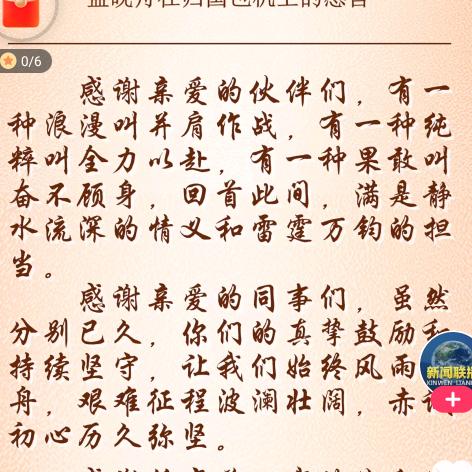 孟晚舟在归国包机上的感言
0/6
感谢亲爱的伙伴们，有一
种浪漫叫并肩作战，有一种纯
粹叫全力以赴，有一种果敢叫
奋不顾身，回首此间，满是静
水流深的情义和雷霆万钧的担
当。
感谢亲爱的同事们，虽然
分别已久，你们的真挚鼓励和
持续坚守，让我们始终风雨
舟，艰难征程波澜壮阔，赤
初心历久弥坚。
新闻联播
XINWEN LIANBO